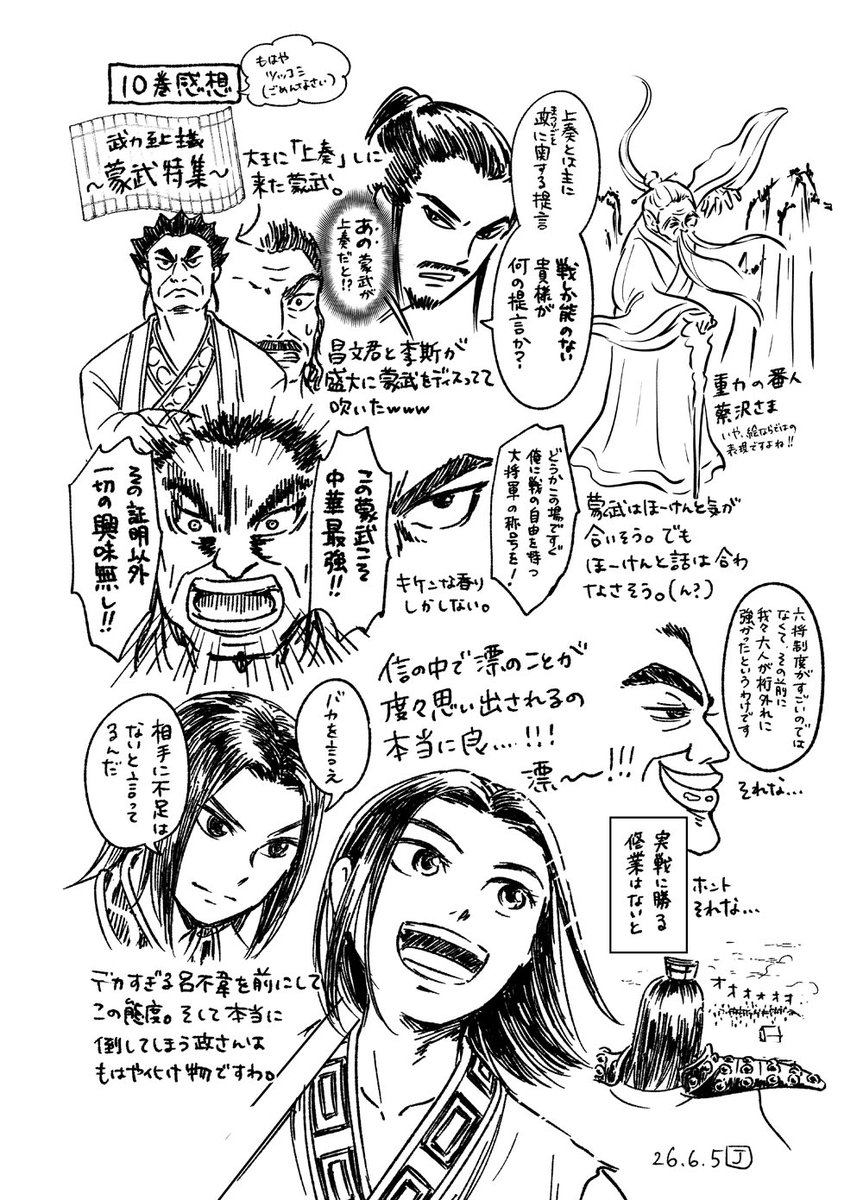 10巻感想
もはや
ツッコミ
(ごめんなさい)
武力至上主義
～蒙武特集～
大王に「上奏」しに
来た蒙武。
あの蒙武が
上奏だと!?
上奏とは主に
政に関する提言
まつりごと
戦しか能のない
貴様が
何の提言か?
昌文君と李斯が
盛大に蒙武をディスってて
吹いたwww
重力の番人
蔡沢さま
いや、絵ならではの
表現ですよね!!
この蒙武こそ
中華最強!!
その証明以外
一切の興味無し!!
どうかこの場ですぐ
俺に戦の自由を持つ
大将軍の称号を!
キケンな香り
しかしない。
蒙武はほーけんと気が
合いそう。でも
ほーけんと話は合わ
なさそう。(ん?)
六将制度がすごいのでは
なくて、その前に
我々六人が桁外れに
強かったというわけです
それな…
信の中で漂のことが
度々思い出されるの
本当に良…!!!
漂〜〜!!!
バカを言え
相手に不足は
ないと言って
るんだ
実戦に勝る
修業はないと
ホント
それな…
オオオオオ
デカすぎる呂不韋を前にして
この態度。そして本当に
倒してしまう政さんは
もはや化け物ですわ。
26.6.5 J